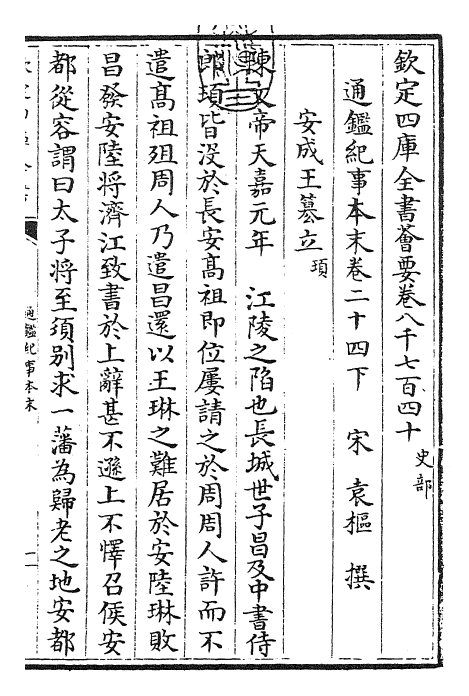 欽定四庫全書薈要卷八千七百四十 史部
通鑑紀事本末卷二十四下 宋 袁樞 撰
安成王簒立 頊
陳文帝天嘉元年 江陵之陷也長城世子昌及中書侍
郎頊皆没於長安髙祖即位屢請之於周周人許而不
遣髙祖殂周人乃遣昌還以王琳之難居於安陸琳敗
昌發安陸將濟江致書於上辭甚不遜上不懌召侯安
都從容謂曰太子將至須别求一藩為歸老之地安都
通鑑紀事本末